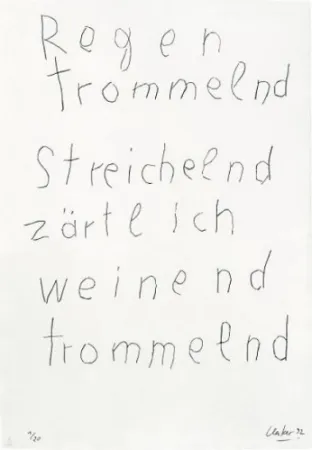 Regen
trommelnd
Streichelnd
zärtlich
weinend
trommelnd